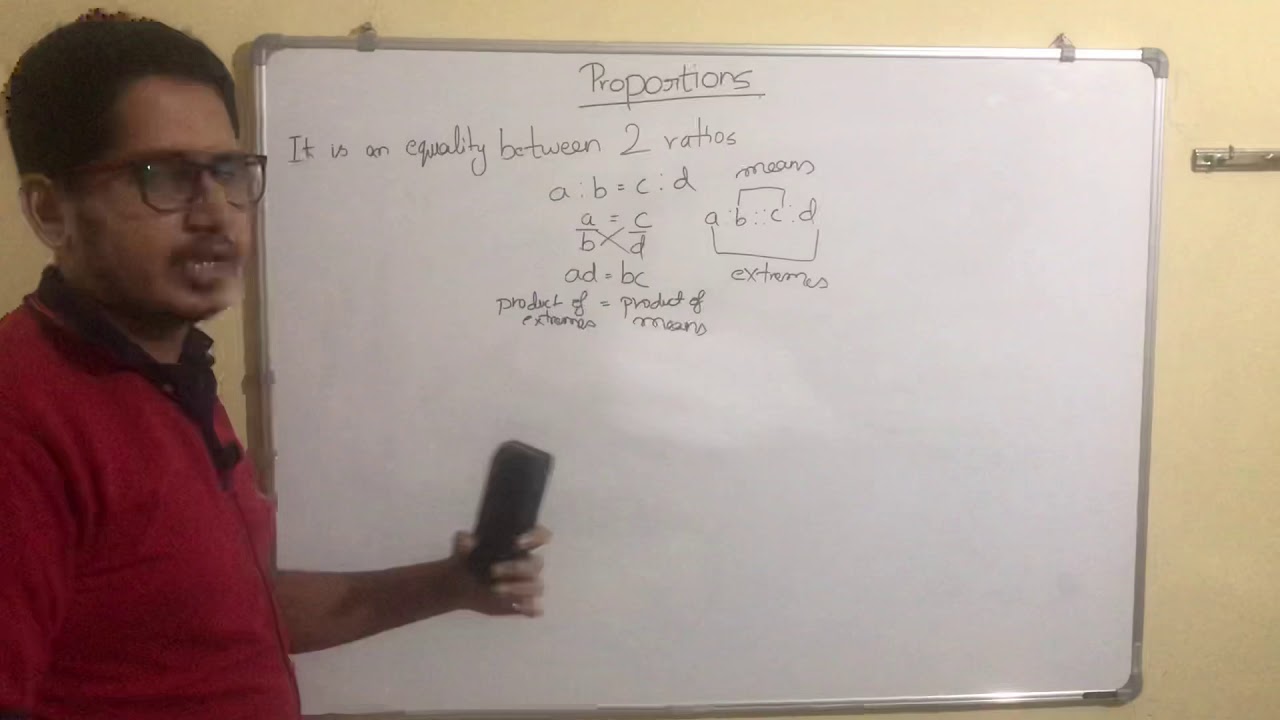 Proportions
It is an equality between 2 ratios
a : b = c : d
a/b = c/d
ad = bc
product of extremes = product of means
means
a : b :: c : d
extremes